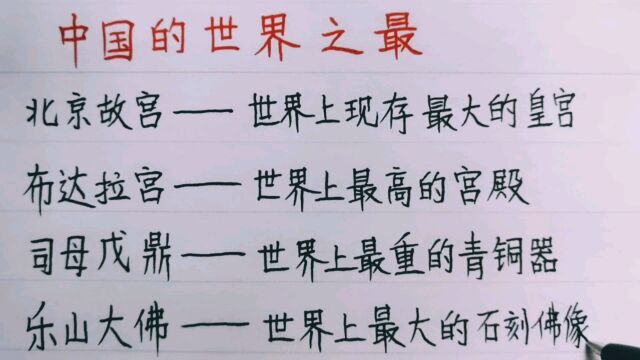 中国的世界之最
北京故宫——世界上现存最大的皇宫
布达拉宫——世界上最高的宫殿
司母戊鼎——世界上最重的青铜器
乐山大佛——世界上最大的石刻佛像